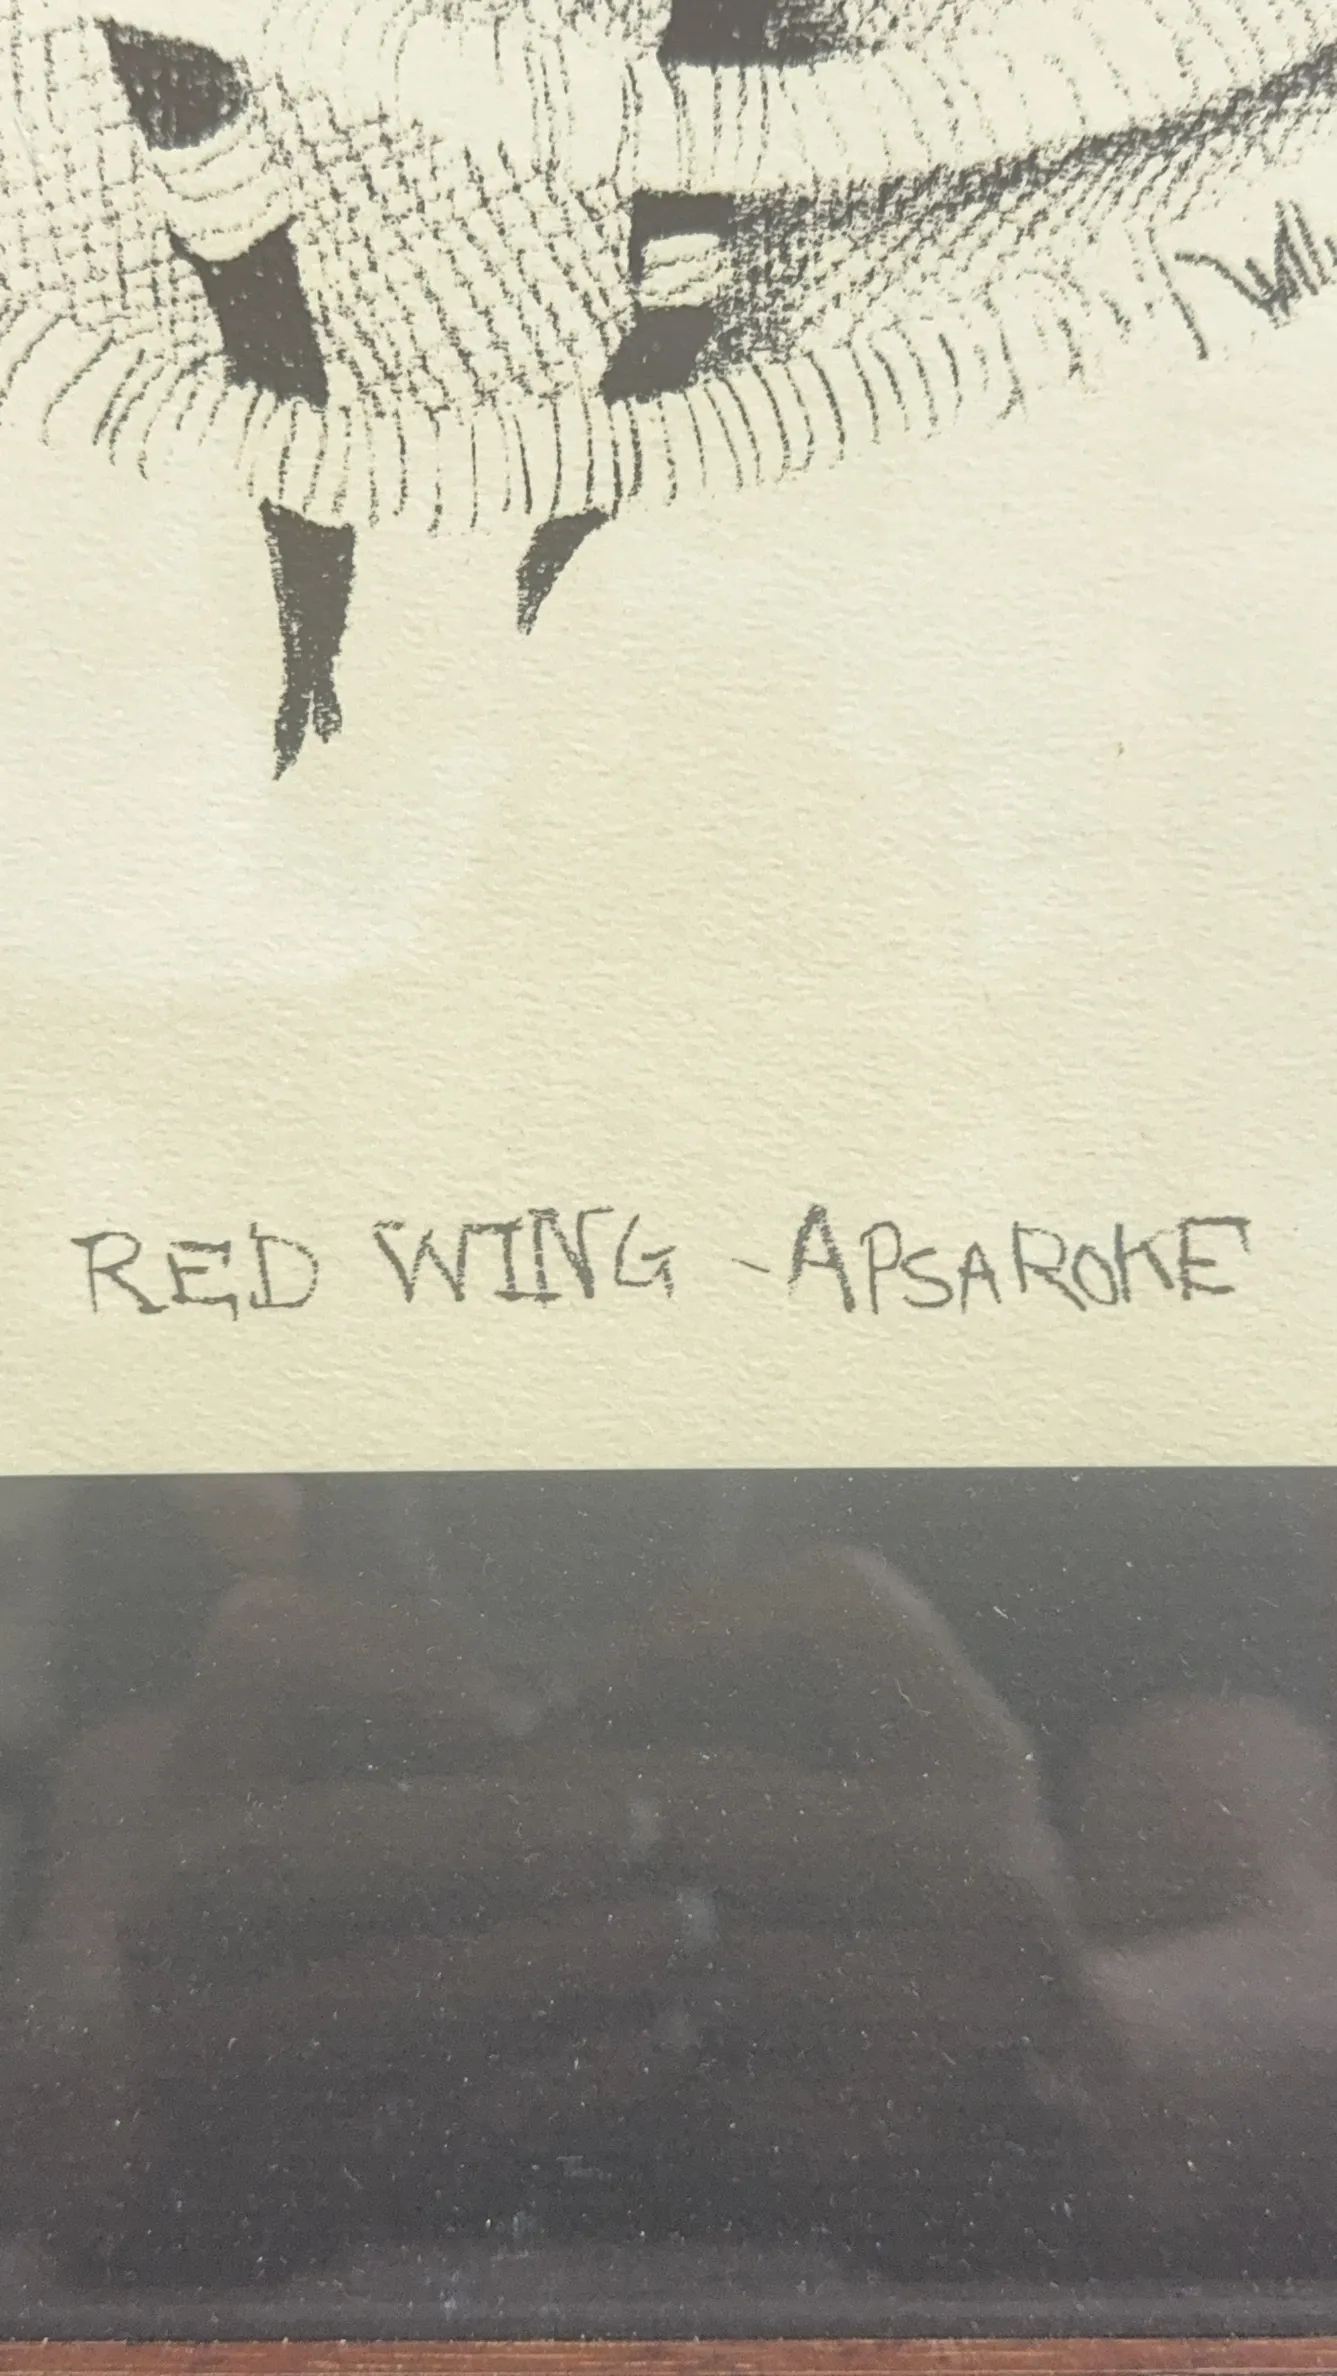 RED WING - APSAROKE